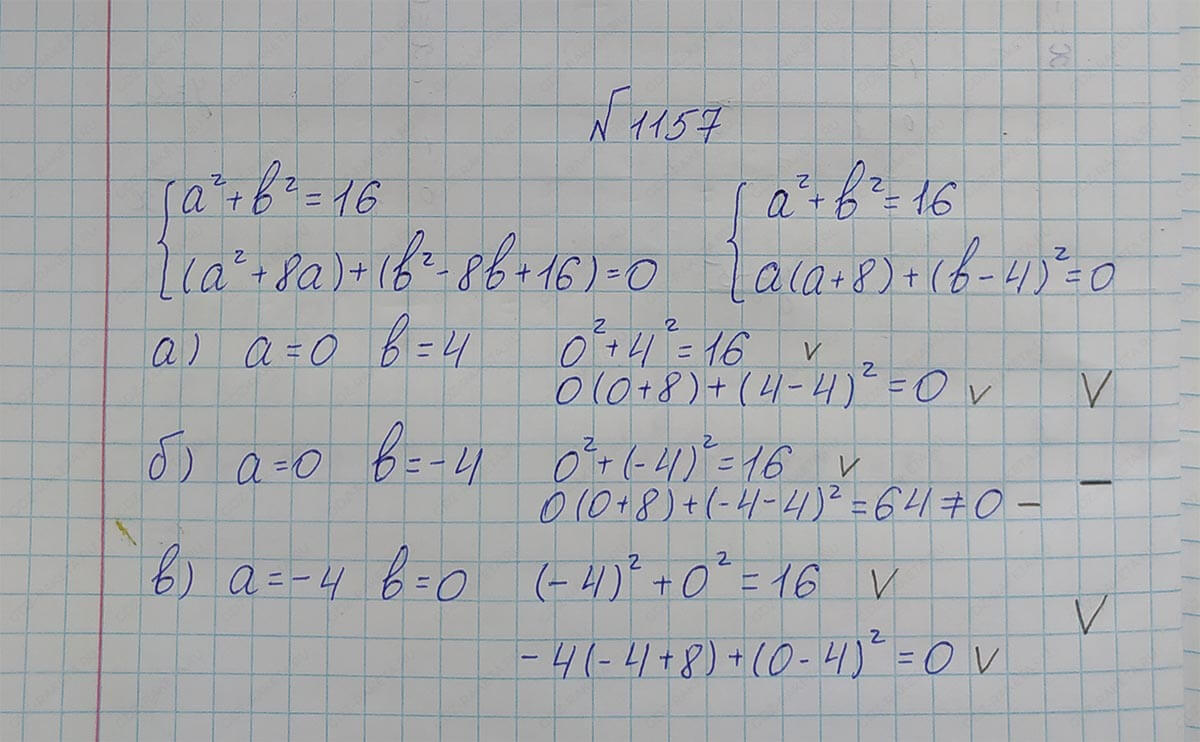 №1157
{a²+b²=16 {a²+b²=16
(a²+8a)+(b²-8b+16)=0 a(a+8)+(b-4)²=0
а) a=0 b=4 0²+4²=16 v
0(0+8)+(4-4)²=0 v V
б) a=0 b=-4 0²+(-4)²=16 v
0(0+8)+(-4-4)²=64≠0 - -
в) a=-4 b=0 (-4)²+0²=16 V
-4(-4+8)+(0-4)²=0 V V